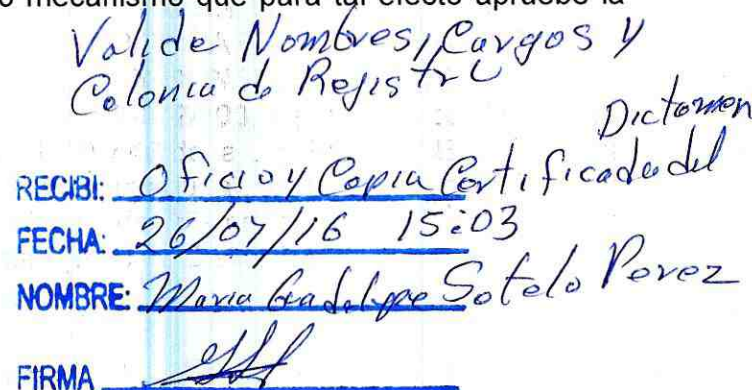 o mecanismo que para tal efecto apruebe la
Valide Nombres, Cargos y
Colonia de Registro
Dictamen
RECIBI: Oficio y Copia Certificada del
FECHA: 26/07/16 15:03
NOMBRE: Maria Guadalupe Sotelo Perez
FIRMA